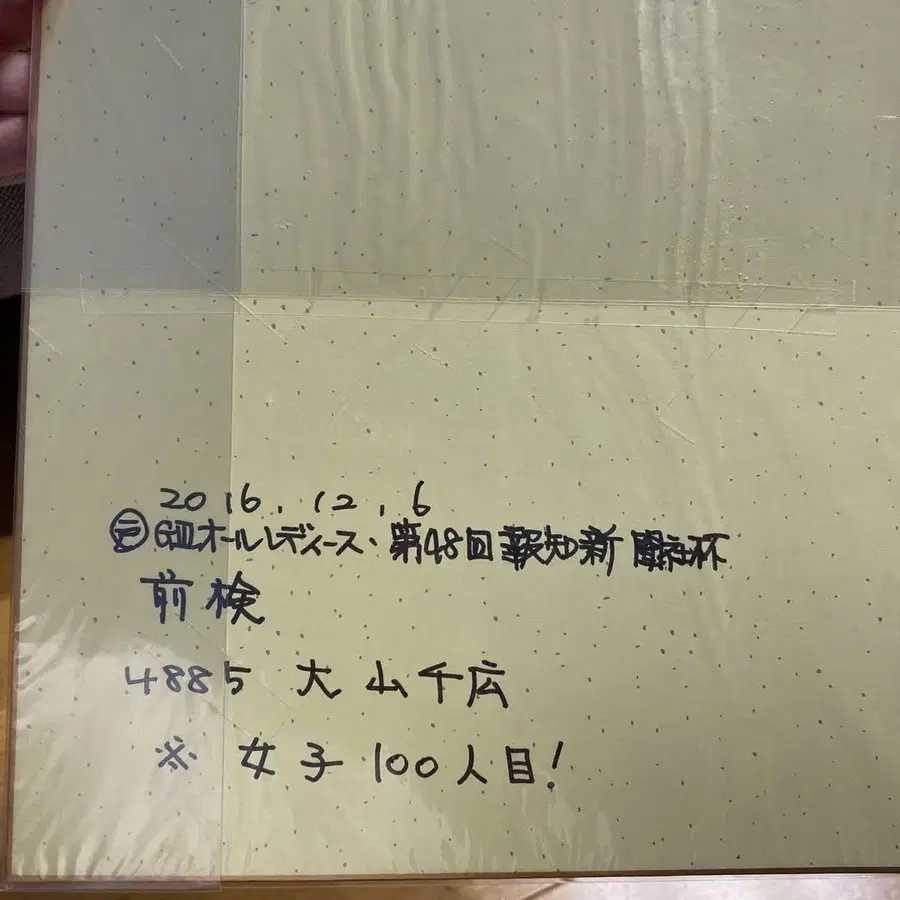 2016.12.6
GⅢオールレディース・第48回報知新聞社杯
前検
4885 大山千広
※ 女子100人目!